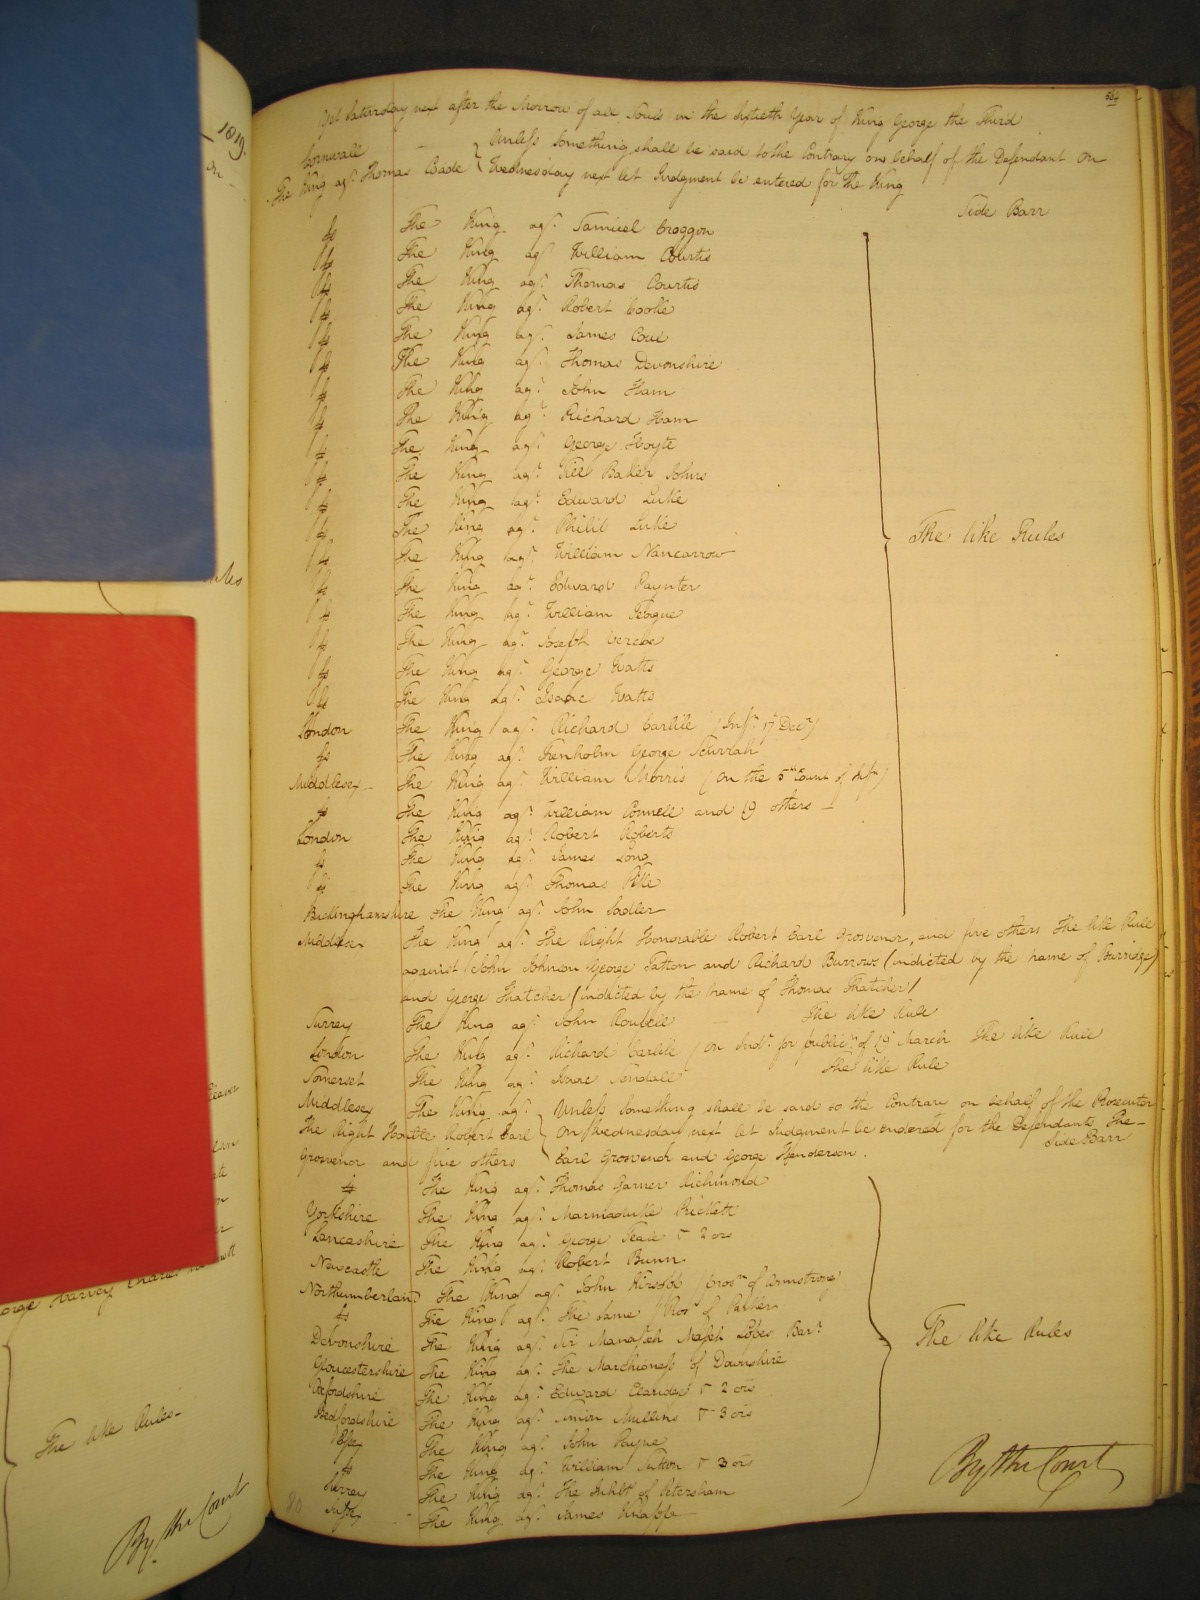 1819
Yet Saturday next after the Morrow of all Souls in the Sixtieth Year of King George the Third
Cornwall
The King agt. Thomas Coade
Unless Something shall be said to the Contrary on behalf of the Defendant on
Wednesday next let Judgment be entered for the King
Side Barr
fs The King agt. Samuel Croggon
fs The King agt. William Courtis
fs The King agt. Thomas Courtis
fs The King agt. Robert Cooke
fs The King agt. James
fs The King agt. Thomas Devonshire
fs The King agt. John Ham
fs The King agt. Richard Ham
fs The King agt. George Hoyte
fs The King agt. Baker Johns
fs The King agt. Edward Luke
fs The King agt. Philip Luke
fs The King agt. William Nancarrow
fs The King agt. Edward Paynter
fs The King agt. William Teague
fs The King agt. Joseph Vercoe
fs The King agt. George Watts
fs The King agt. Isaac Watts
London The King agt. Richard Carlile (Infn. 17 Decr.)
fs The King agt. Trenholm George
Middlesex The King agt. William Morris (on the 5th Count of Infn)
fs The King agt. William Connell and 19 others
London The King agt. Robert Roberts
fs The King agt. James Long
fs The King agt. Thomas Pike
The like Rules
Buckinghamshire The King agt. John Sadler
Middlesex The King agt. The Right Honorable Robert Earl Grosvenor, and five others The like Rule
against John Johnson George Tatton and Richard Burrows (indicted by the name of Burridge)
and George Thatcher (indicted by the name of Thomas Thatcher)
Surrey The King agt. John Roubell The like Rule
London The King agt. Richard Carlile (on Indt. for publicn. of 19 March The like Rule
Somerset The King agt. Isaac Tyndale The like Rule
Middlesex The King agt.
The Right Honble Robert Earl
Grosvenor and five others
Unless something shall be said to the Contrary on behalf of the Prosecutor
on Wednesday next let Judgment be entered for the Defendants The
Earl Grosvenor and George Henderson.
Side Barr
fs The King agt. Thomas Garner Richmond
Yorkshire The King agt. Marmaduke Prickett
Lancashire The King agt. George Teale & 2 ors
Newcastle The King agt. Robert Bunn
Northumberland The King agt. John Kirsopp (Prosn of Armstrong)
fs The King agt. The same (Prosn of Parker
Devonshire The King agt. Sir Manasseh Masseh Lopes Bart.
Gloucestershire The King agt. The Marchioness of Downshire
Oxfordshire The King agt. Edward Claridge & 2 ors
Bedfordshire The King agt. Simon Mullins & 3 ors
Essex The King agt. John Payne
fs The King agt. William Sutton & 3 ors
Surrey The King agt. The Inhts of Petersham
The King agt. James Knapp
The like Rules
By the Court
George Harvey Charles
The like Rules
By the Court